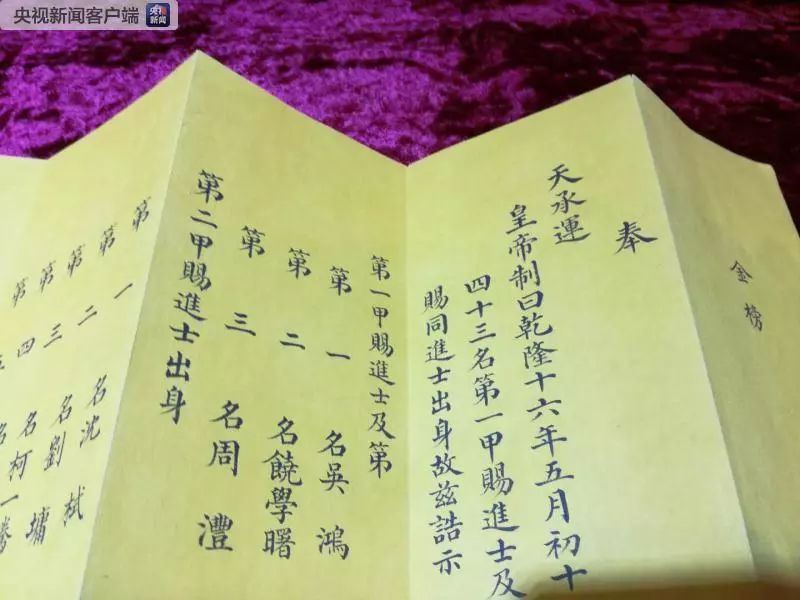 央视新闻客户端
央视
新闻
金榜
奉
天承運
皇帝制曰乾隆十六年五月初十
四十三名第一甲賜進士及
賜同進士出身故茲誥示
第一甲賜進士及第
第一名吳鴻
第二名饒學曙
第三名周灃
第二甲賜進士出身
第一名沈栻
第二名劉墉
第三名柯一騰
第四名